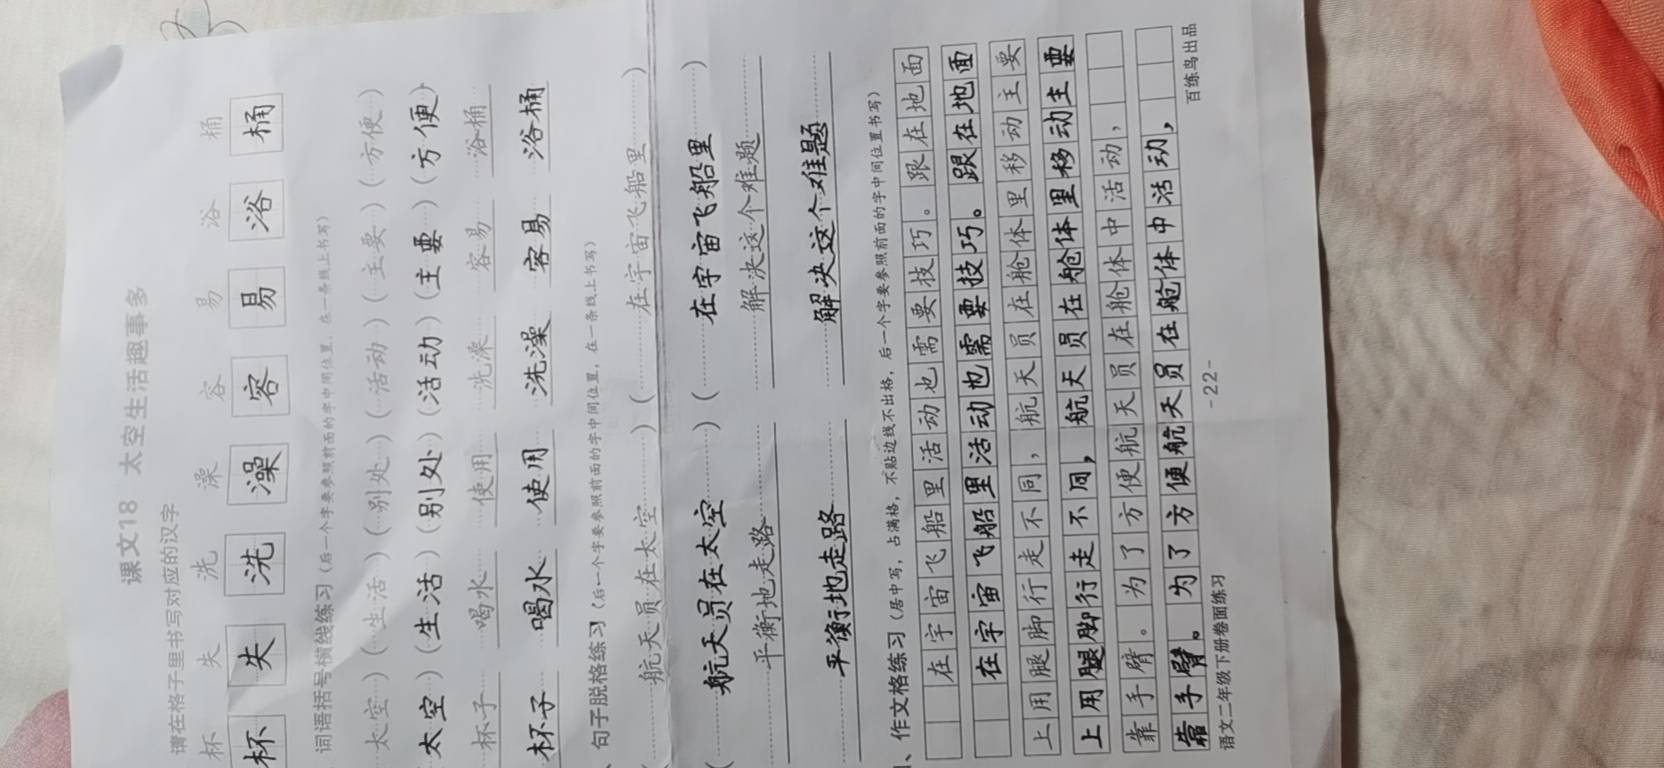 课文18 太空生活趣事多
请在格子里书写对应的汉字
杯 失 洗 澡 容 易 浴 桶
杯 失 洗 澡 容 易 浴 桶
词语括号横线练习（后一个字要参照前面的字中间位置，在一条线上书写）
太空）（生活）（别处）（活动）（主要）（方便）
太空）（生活）（别处）（活动）（主要）（方便）
杯子 喝水 使用 洗澡 容易 浴桶
杯子 喝水 使用 洗澡 容易 浴桶
句子脱格练习（后一个字要参照前面的字中间位置，在一条线上书写）
（航天员在太空）（在宇宙飞船里）
（航天员在太空）（在宇宙飞船里）
平衡地走路 解决这个难题
平衡地走路 解决这个难题
、作文格练习（居中写，占满格，不贴边线不出格，后一个字要参照前面的字中间位置书写）
在宇宙飞船里活动也需要技巧。跟在地面
在宇宙飞船里活动也需要技巧。跟在地面
上用腿脚行走不同，航天员在舱体里移动主要
上用腿脚行走不同，航天员在舱体里移动主要
靠手臂。为了方便航天员在舱体中活动，
靠手臂。为了方便航天员在舱体中活动，
语文二年级下册卷面练习
-22-
百练鸟出品